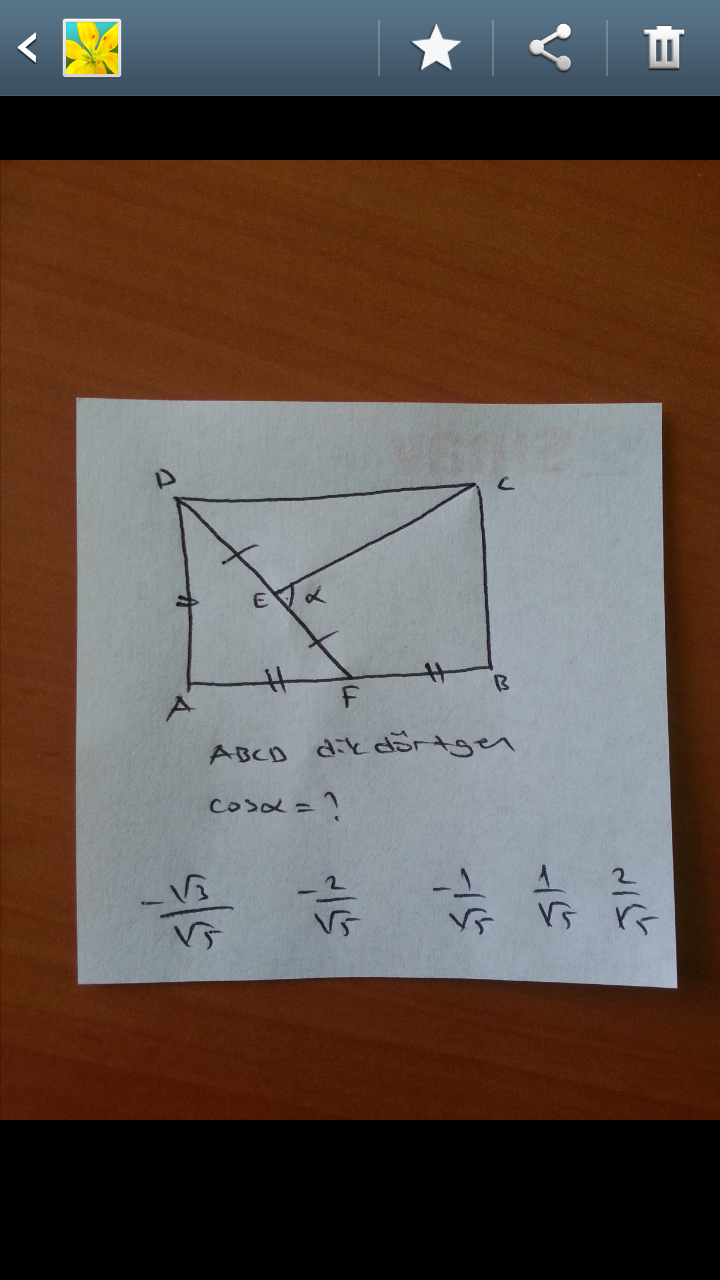 D C
E α
A F B
ABCD dikdörtgen
cosα = ?
-√3/√5 -2/√5 -1/√5 1/√5 2/√5